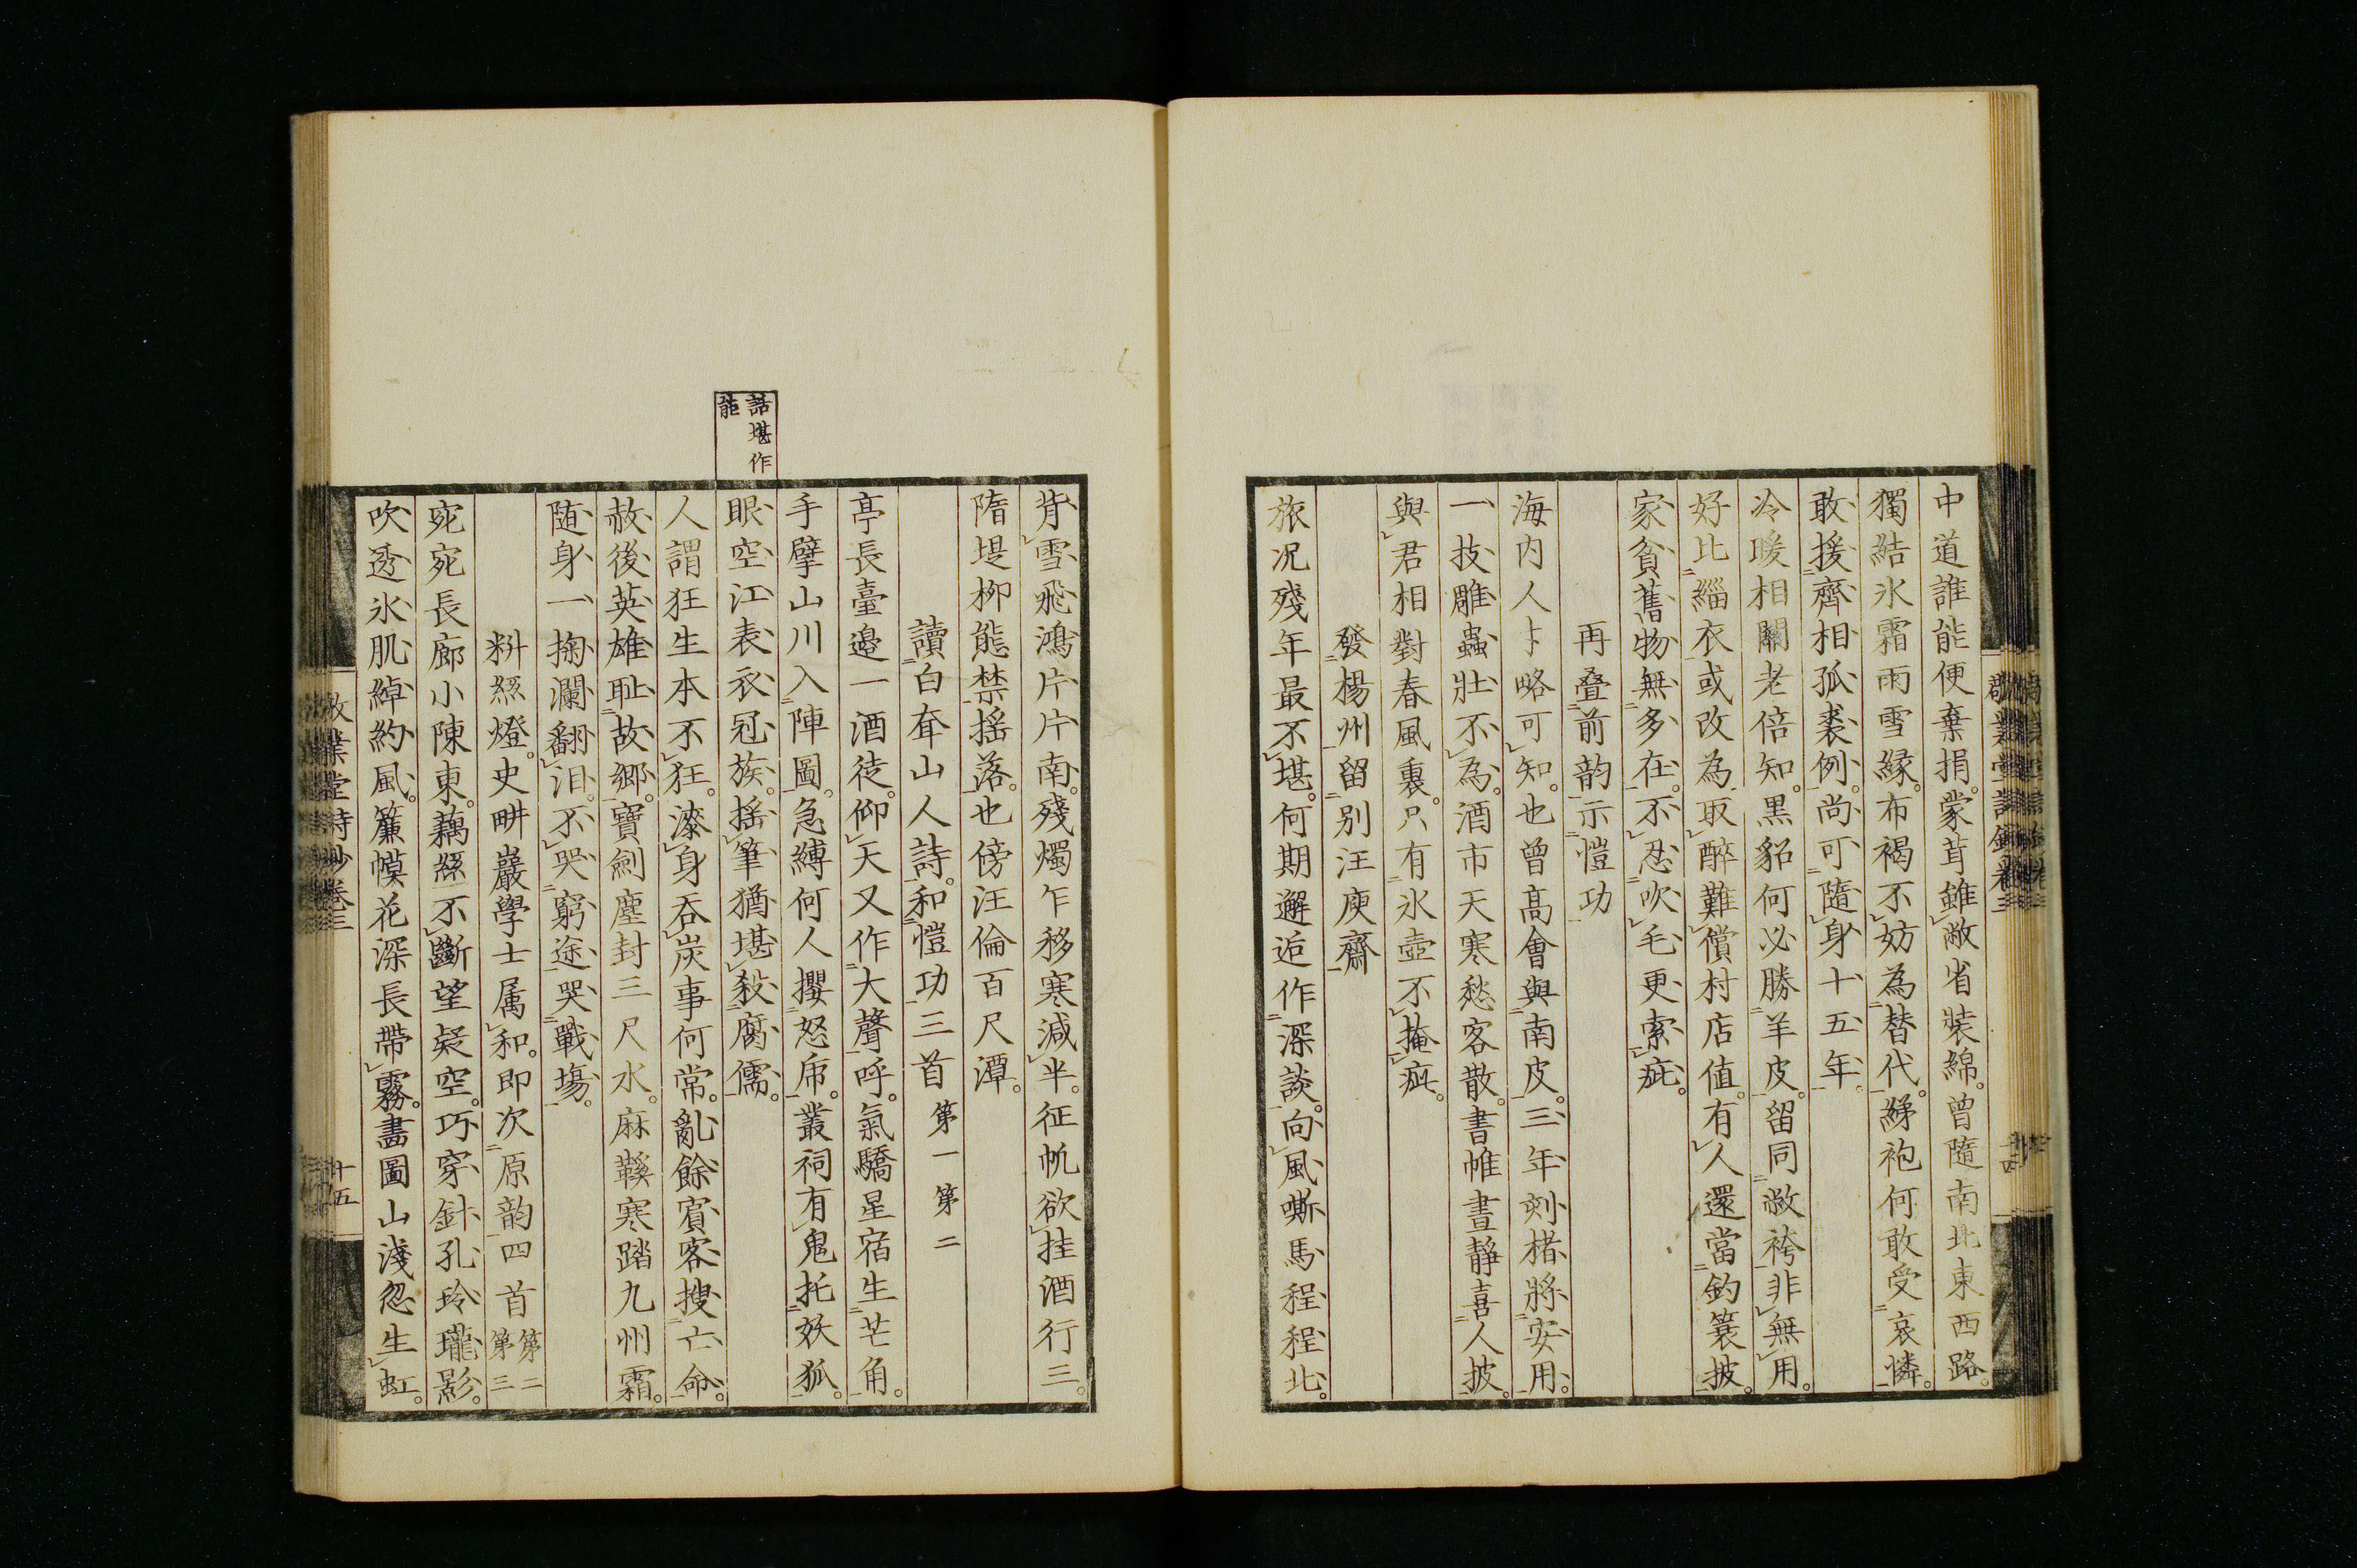 中道誰能便棄捐蒙茸雖敝省裝綿曾隨南北東西路
獨結氷霜雨雪縁布褐不妨為替代綈袍何敢受哀憐
敢援齊相孤裘例尚可隨身十五年
冷暖相關老倍知黒貂何必勝羊皮留同敝袴非無用
好比緇衣或改為取醉難償村店值有人還當釣簑披
家貧舊物無多在不忍吹毛更索疵
再叠前韵示愷功
海内人才略可知也曾髙會與南皮三年刻楮將安用
一技雕蟲壯不為酒市天寒愁客散書帷晝靜喜人披
與君相對春風裏只有氷壺不掩疵
發楊州留别汪庾齋
旅况殘年最不堪何期邂逅作深談向風嘶馬程程北
背雪飛鴻片片南殘燭乍移寒減半征帆欲挂酒行三
隋堤柳態禁摇落也傍汪倫百尺潭
讀白耷山人詩和愷功三首第一第二
亭長臺邉一酒徒仰天又作大聲呼氣驕星宿生芒角
手擘山川入陣圖急縛何人攖怒乕叢祠有鬼托妖狐
眼空江表衣冠族摇筆猶堪殺腐儒
話堪作
能
人謂狂生本不狂漆身吞炭事何常亂餘賓客搜亡命
赦後英雄耻故郷寶劍塵封三尺水麻鞵寒踏九州霜
随身一掬瀾翻泪不哭窮途哭戰塲
料絲燈史畊巖學士属和即次原韵四首第二第三
宛宛長廊小陳東藕絲不斷望疑空巧穿針孔玲瓏影
吹透氷肌綽約風簾幙花深長帶霧畵圖山淺忽生虹
敬業堂詩鈔卷三
十五